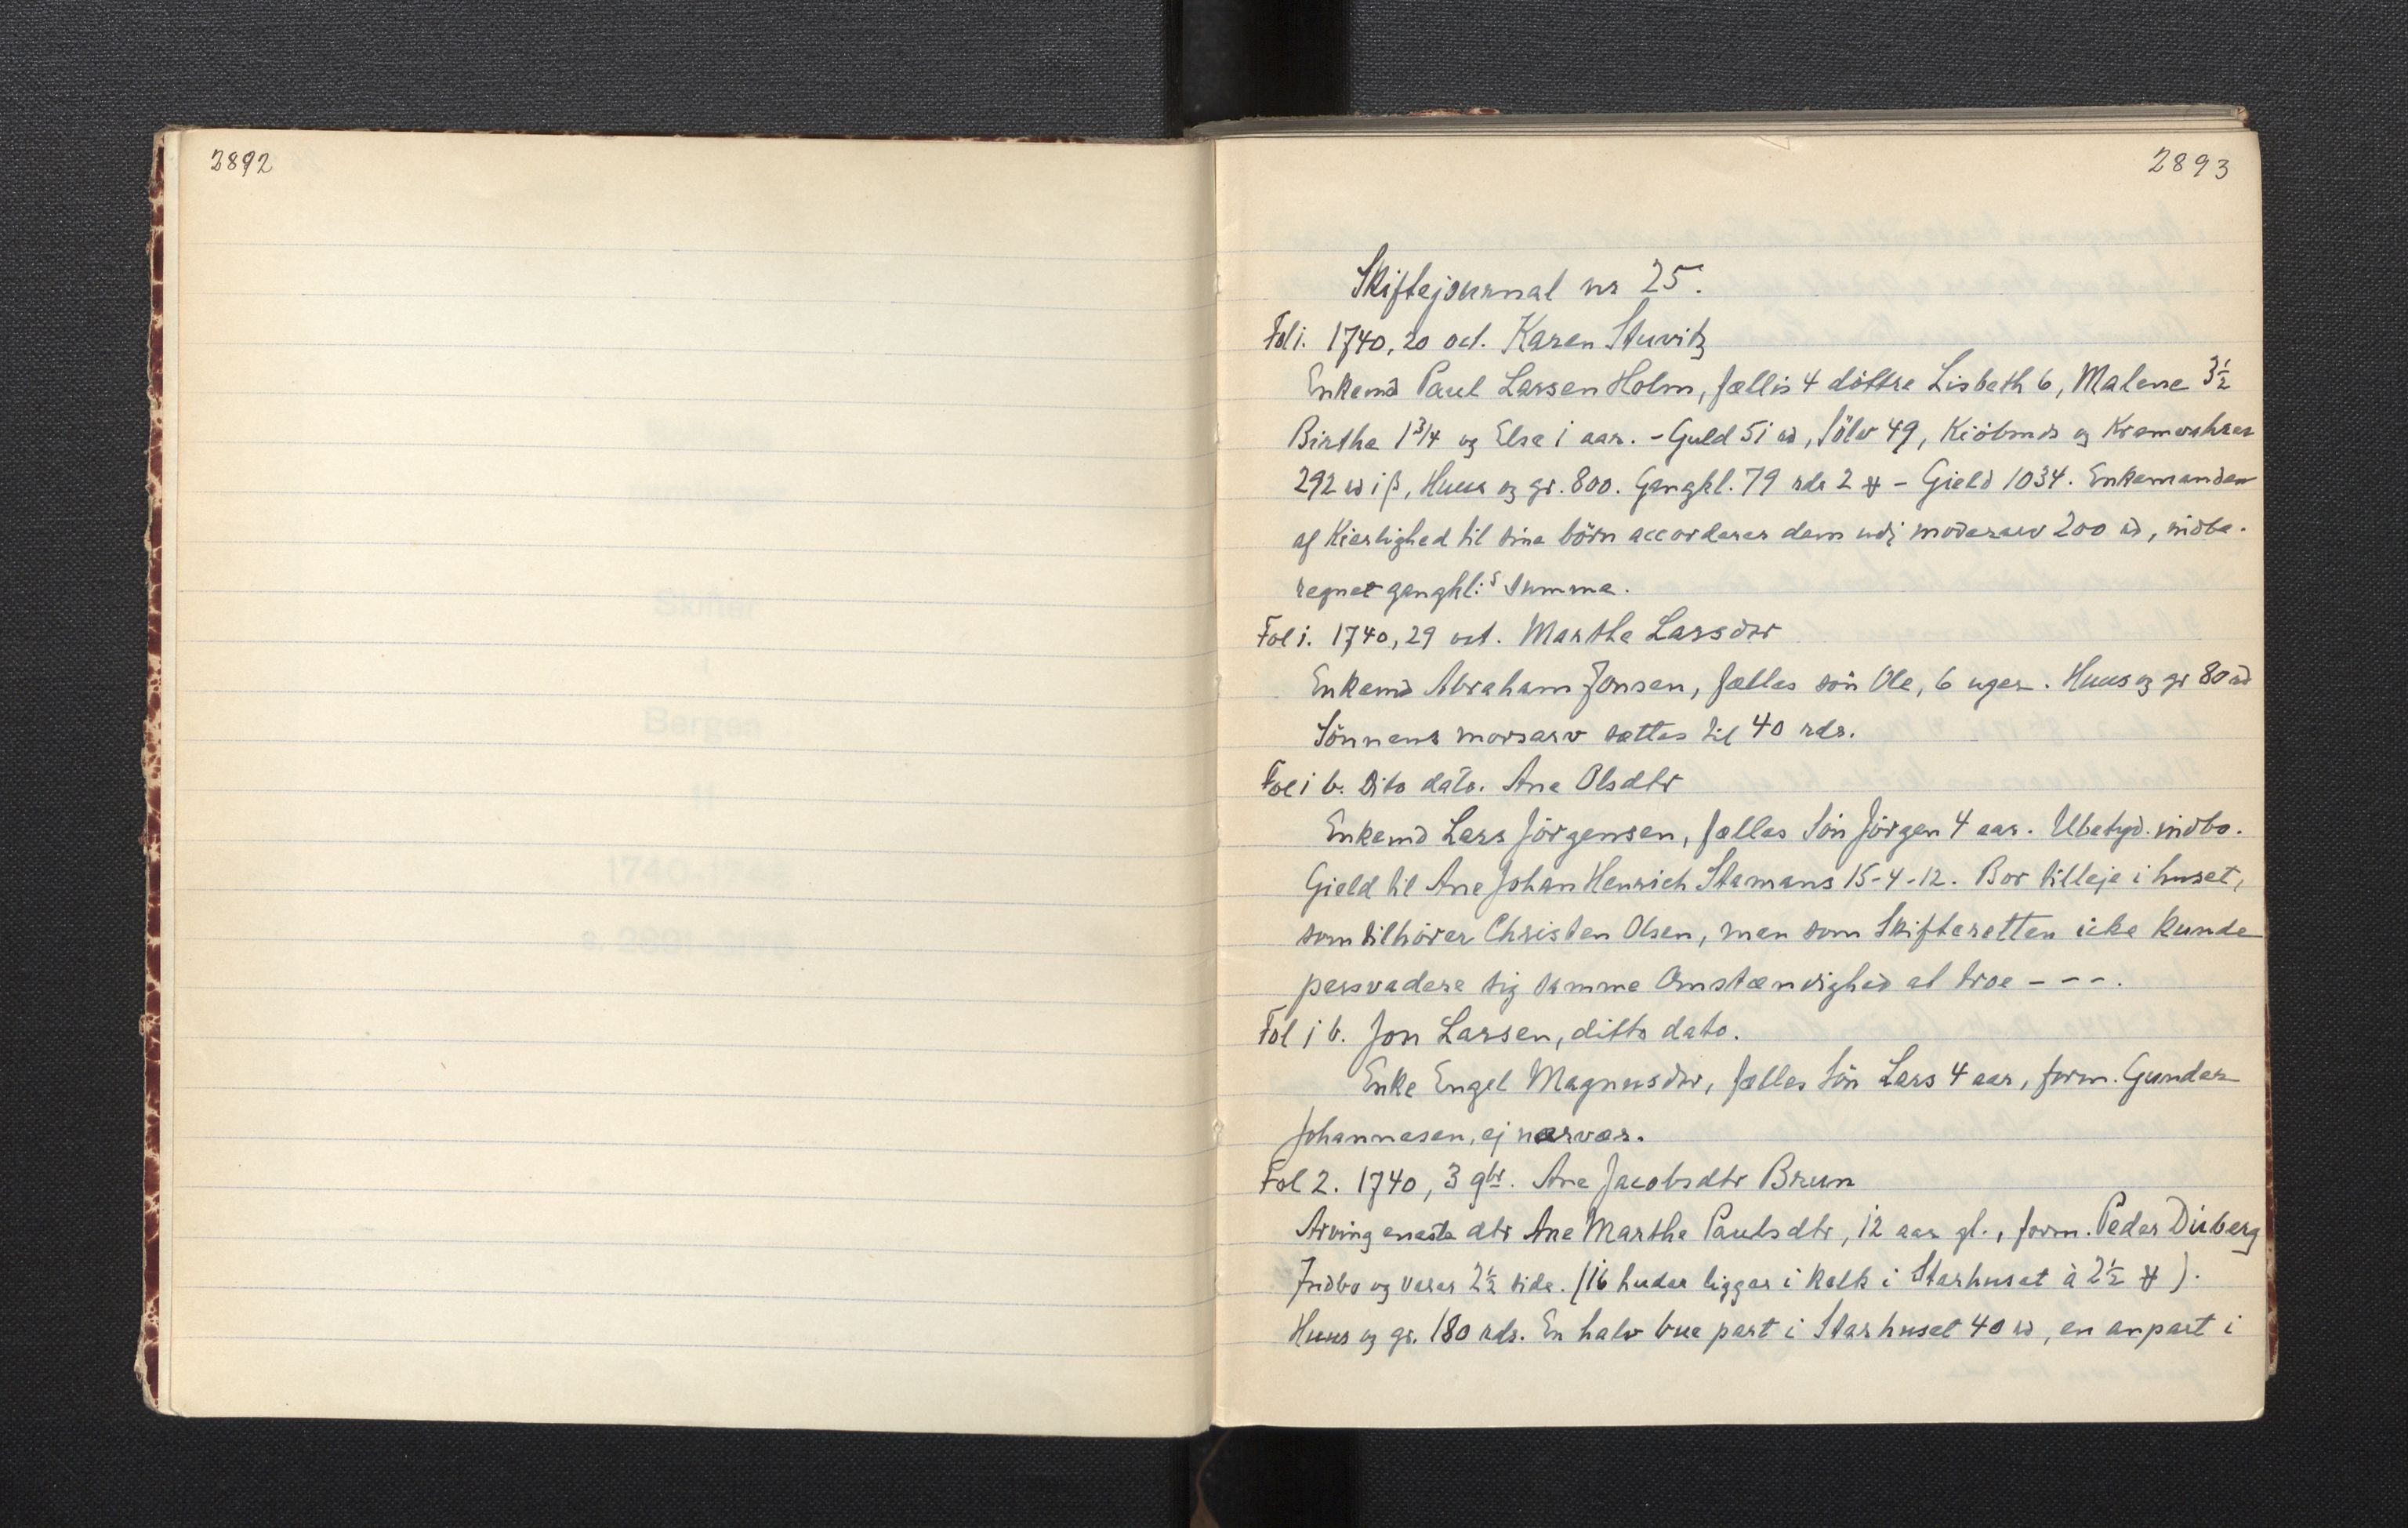 2892
2893
Skiftejournal nr 25.
Fol i. 1740, 20 oct. Karen Stuvitz
Enkemd Paul Larsen Holm, fællis 4 döttre Lisbeth 6, Malene 3½
Birthe 1 3/4 og Else i aar. - Guld 5i rd, Sölv 49, Kiöbmds og Kramvahrer
292 rd i ß, Huus og gr. 800. Gangkl. 79 rdr 2 ℔ - Gield 1034. Enkemanden
af Kierlighed til sine börn accorderer dem udj moderarv 200 rd, indbe-
regnet gangkl:s Summa.
Fol i. 1740, 29 oct. Marthe Larsdtr
Enkemd Abraham Jonsen, fælles sön Ole, 6 uger. Huus og gr 80 rd
Sönnens morsarv sættes til 40 rdr.
Fol i b. Dito dato. Ane Olsdtr
Enkemd Lars Jörgensen, fælles Sön Jörgen 4 aar. Ubetyd. indbo.
Gield til Ane Johan Henrich Stamans 15-4-12. Bor tilleje i huset,
som tilhörer Christen Olsen, men som Skifteretten icke kunde
persvadere sig samme Omstændighed at troe - - -.
Fol i b. Jon Larsen, ditto dato.
Enke Engel Magnusdtr, fælles Sön Lars 4 aar, form. Gunder
Johannesen, ej nærvær.
Fol 2. 1740, 3 9br. Ane Jacobsdtr Brun
Arving eneste dtr Ane Marthe Paulsdtr, i2 aar gl., form. Peder Dirberg
Indbo og varer 2½ side. (i6 huder ligger i kalk i Starhuset à 2½ ℔).
Huus og gr. 180 rdr. En halv bue part i Starhuset 40 rd, en anpart i